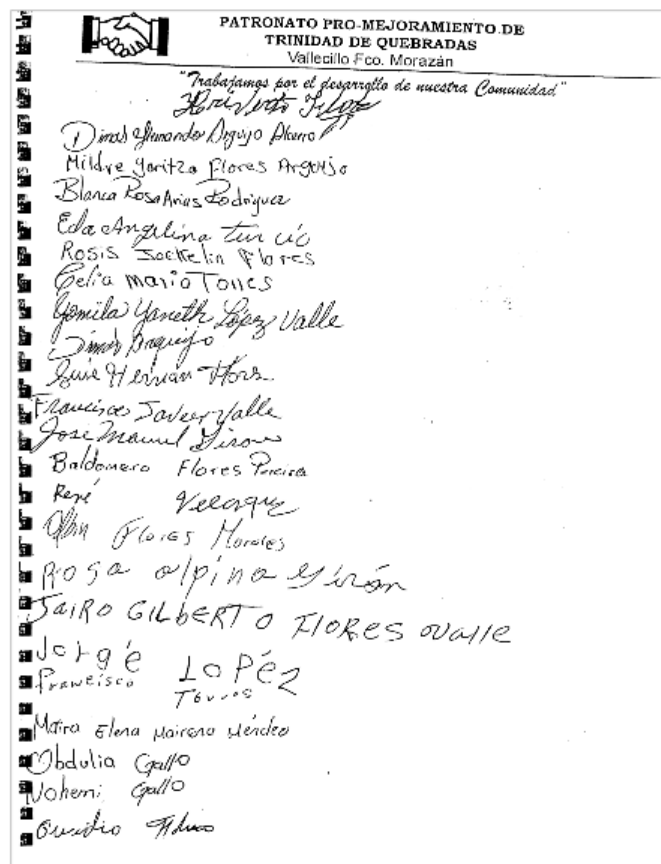 PATRONATO PRO-MEJORAMIENTO DE
TRINIDAD DE QUEBRADAS
Vallecillo Fco. Morazán
"Trabajamos por el desarrollo de nuestra Comunidad"
Dimas Armando Arguijo
Mildre Yaritza Flores Arguijo
Blanca Rosa Arias Rodriguez
Eda Angelina Turcio
Rosis Jackelin Flores
Celia Maria Torres
Yaneth López Valle
Dimas Arguijo
Hernán
Francisco Javeer Valle
José Manuel Giron
Baldomero Flores Pereira
René Velasquez
Flores Morales
Rosa alpina Girón
JAIRO GILbERTO FlORES oValle
Jorgé LOPéz
Francisco Torres
Maira Elena Mairena Méndez
Obdulia Gallo
Nohemi Gallo